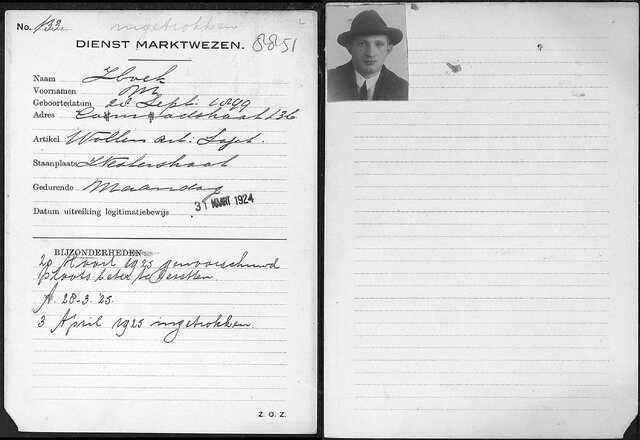 No. 133 ingetrokken
DIENST MARKTWEZEN. 8851
Naam
Voornamen
Geboortedatum 28 Sept. 1899
Adres 136
Artikel Wollen art: Sajet.
Staanplaats Westerstraat
Gedurende Maandag
Datum uitreiking legitimatiebewijs 31 MAART 1924
BIJZONDERHEDEN
Maart 1925 gewaarschuwd
plaats beter te
A. 28-3.'25.
3 April 1925 ingetrokken.
Z. O. Z.